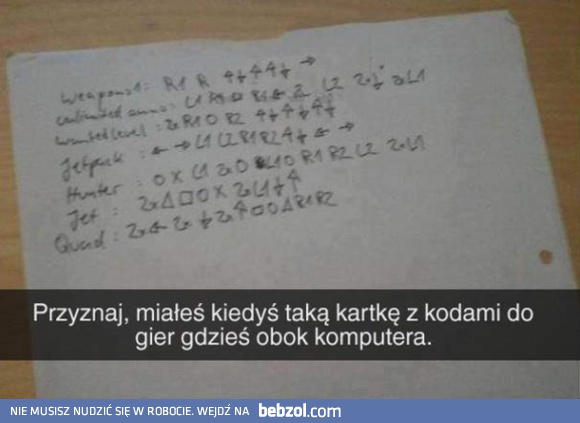 weapons1: R1 R
unlimited ammo: L1
wanted level: 2x R1 O R2
Jetpack: ← → L1 L2 R1 R2 ← →
Hunter: O X L1 2x O L1 O R1 R2 L2 2x L1
Jet: 2x △ □ O X 2x L1
Quad: 2x ← 2x ↓ 2x ↑ □ O △ R1 R2
Przyznaj, miałeś kiedyś taką kartkę z kodami do
gier gdzieś obok komputera.
NIE MUSISZ NUDZIĆ SIĘ W ROBOCIE. WEJDŹ NA bebzol.com